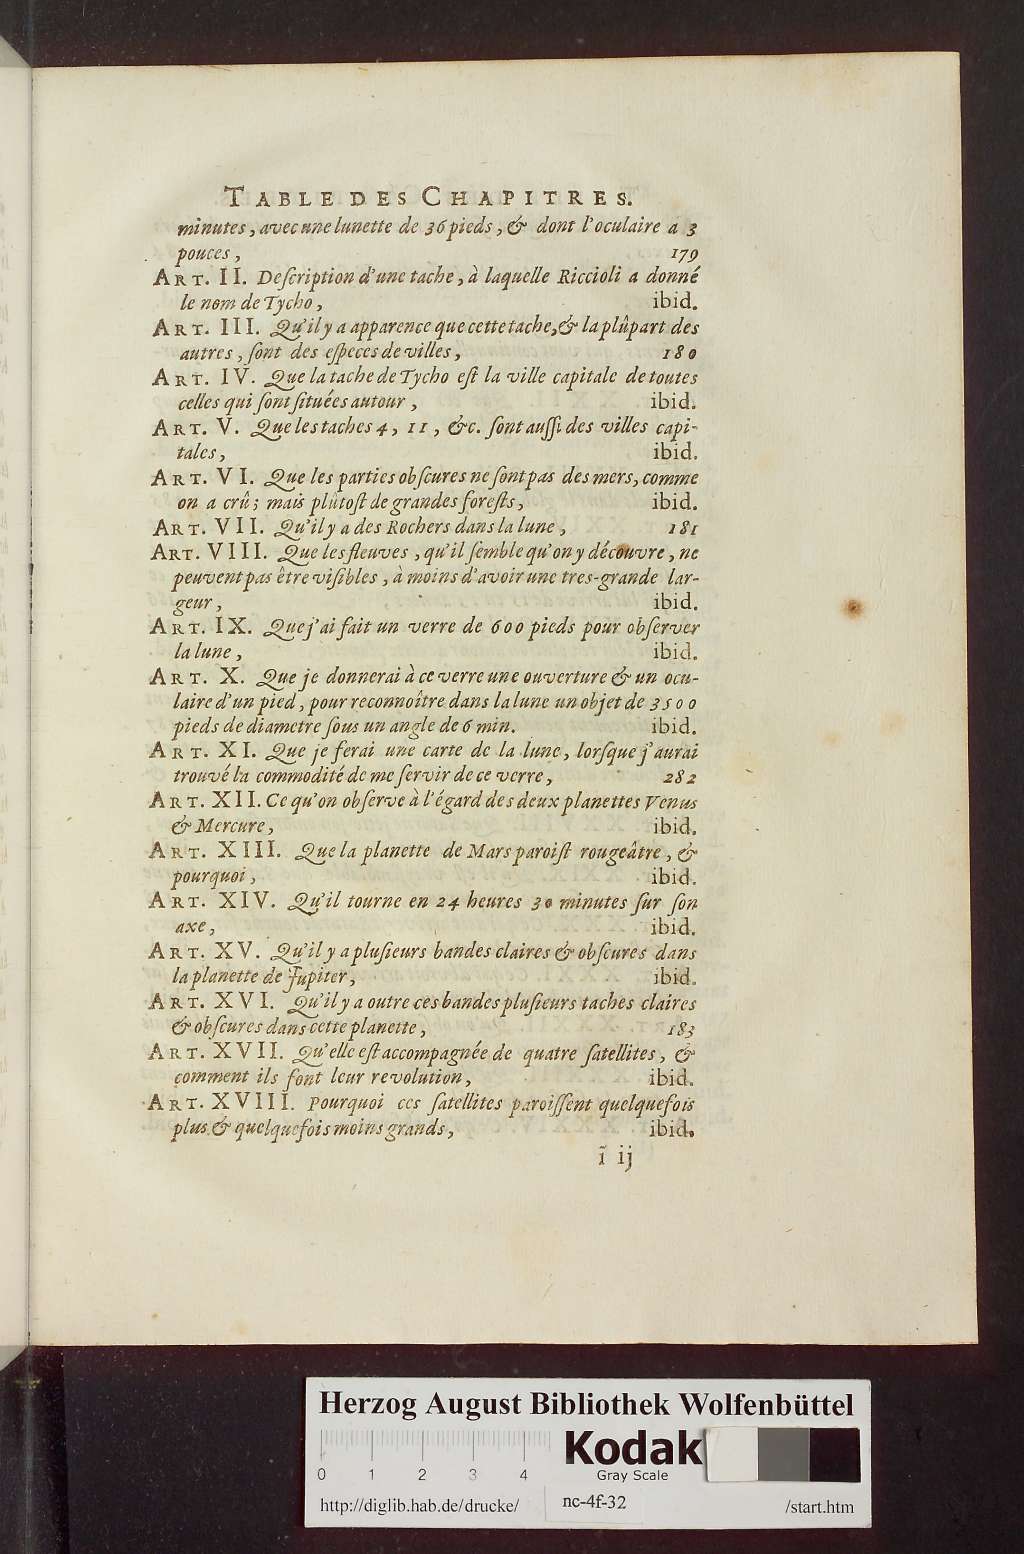 TABLE DES CHAPITRES.
minutes, avec une lunette de 36 pieds, & dont l'oculaire a 3
pouces, 179
ART. II. Deſcription d'une tache, à laquelle Riccioli a donné
le nom de Tycho, ibid.
ART. III. Qu'il y a apparence que cette tache, & la plûpart des
autres, ſont des eſpeces de villes, 180
ART. IV. Que la tache de Tycho eſt la ville capitale de toutes
celles qui ſont ſituées autour, ibid.
ART. V. Que les taches 4, 11, &c. ſont auſſi des villes capi-
tales, ibid.
ART. VI. Que les parties obſcures ne ſont pas des mers, comme
on a crû; mais plûtoſt de grandes foreſts, ibid.
ART. VII. Qu'il y a des Rochers dans la lune, 181
ART. VIII. Que les fleuves, qu'il ſemble qu'on y découvre, ne
peuvent pas être viſibles, à moins d'avoir une tres-grande lar-
geur, ibid.
ART. IX. Que j'ai fait un verre de 600 pieds pour obſerver
la lune, ibid.
ART. X. Que je donnerai à ce verre une ouverture & un ocu-
laire d'un pied, pour reconnoître dans la lune un objet de 3500
pieds de diametre ſous un angle de 6 min. ibid.
ART. XI. Que je ferai une carte de la lune, lorſque j'aurai
trouvé la commodité de me ſervir de ce verre, 282
ART. XII. Ce qu'on obſerve à l'égard des deux planettes Venus
& Mercure, ibid.
ART. XIII. Que la planette de Mars paroiſt rougeâtre, &
pourquoi, ibid.
ART. XIV. Qu'il tourne en 24 heures 30 minutes ſur ſon
axe, ibid.
ART. XV. Qu'il y a pluſieurs bandes claires & obſcures dans
la planette de Jupiter, ibid.
ART. XVI. Qu'il y a outre ces bandes pluſieurs taches claires
& obſcures dans cette planette, 183
ART. XVII. Qu'elle eſt accompagnée de quatre ſatellites, &
comment ils font leur revolution, ibid.
ART. XVIII. Pourquoi ces ſatellites paroiſſent quelquefois
plus & quelquefois moins grands, ibid.
ĩ ij
Herzog August Bibliothek Wolfenbüttel
Kodak
Gray Scale
0 1 2 3 4
http://diglib.hab.de/drucke/ nc-4f-32 /start.htm